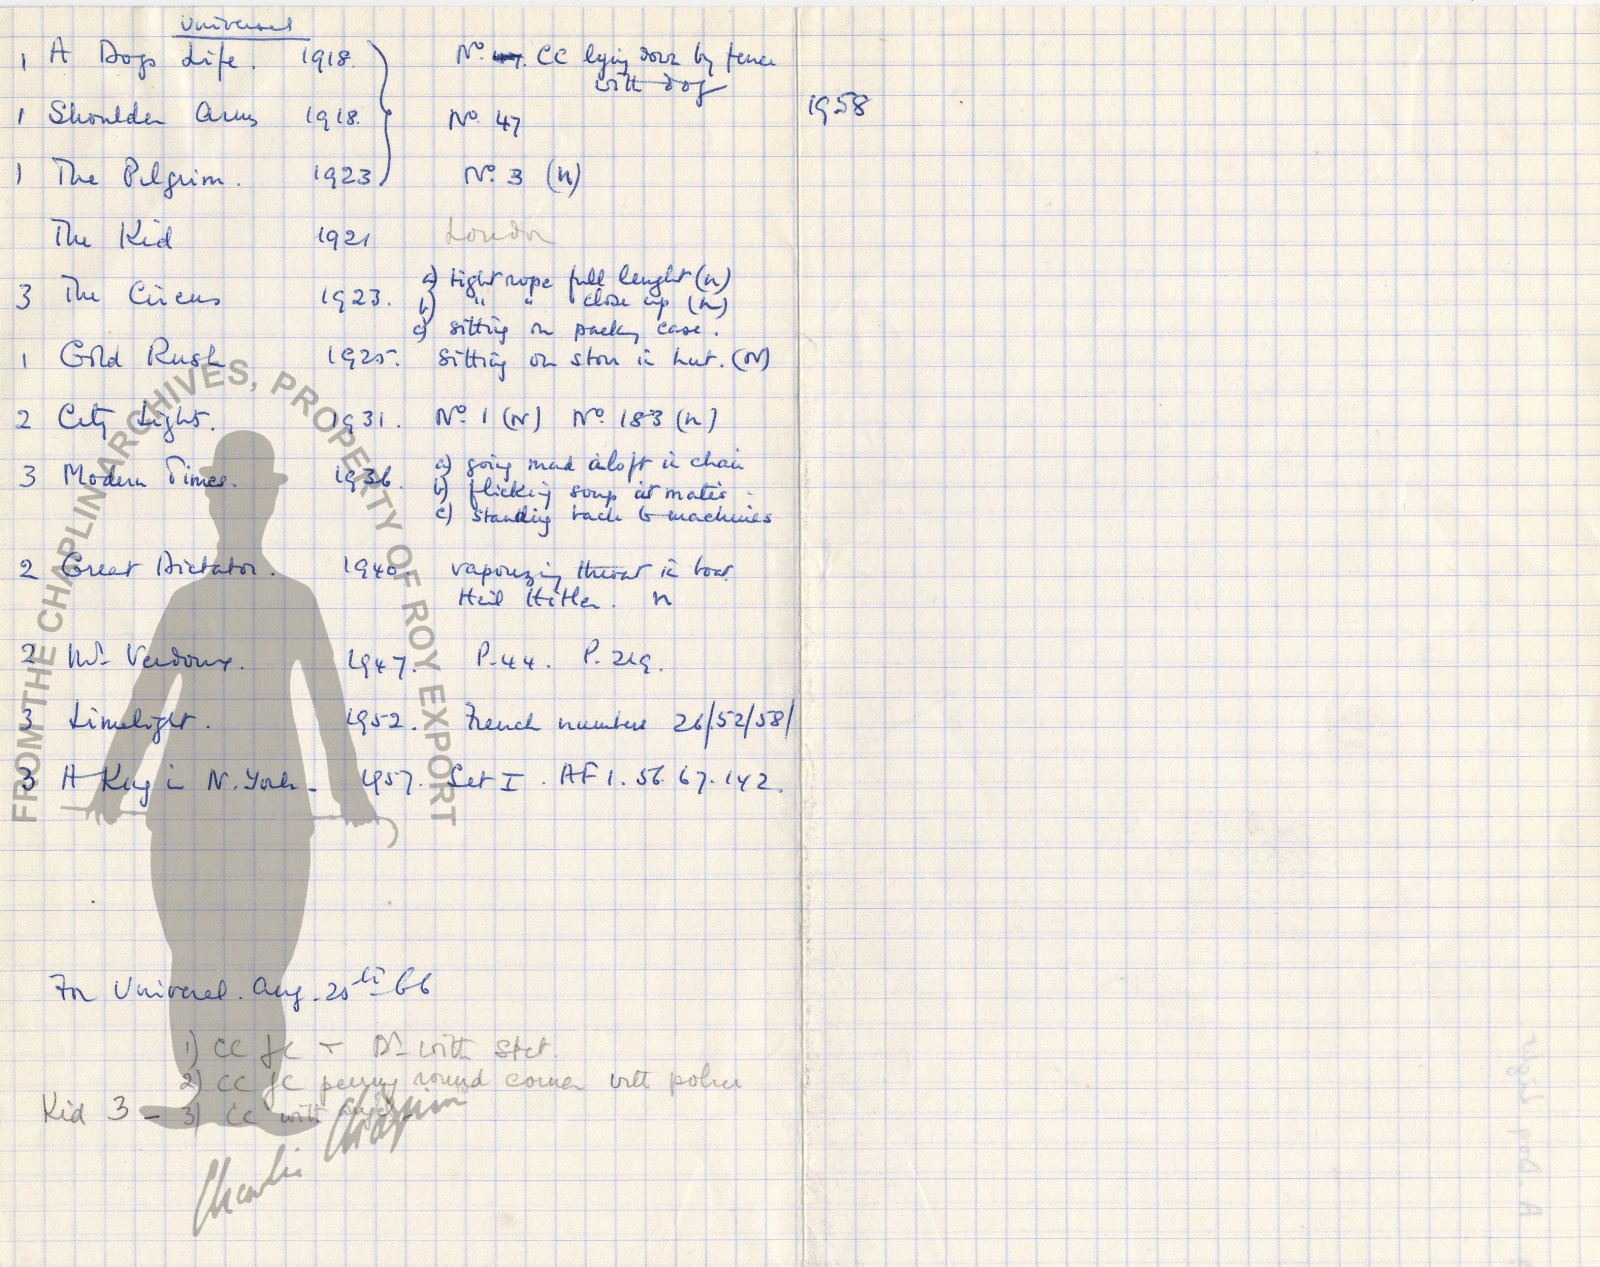 Universal
1 A Dogs Life. 1918. No. CC lying down by fence
with dog
1958
1 Shoulder Arms 1918. No. 47
1 The Pilgrim. 1923 No. 3 (n)
The Kid 1921 London
a) tight rope full lenght (n)
3 The Circus 1923. b) " " close up (n)
c) sitting on packg case.
1 Gold Rush 1925. Sitting on stove in hut. (N)
2 City Light. 1931. No. 1 (N) No. 183 (n)
a) going mad aloft in chair
3 Modern Times. 1936. b) flicking soup at mates.
c) standing back to machines
2 Great Dictator. 1940. vaporizing throat in boat.
Heil Hitler. n
2 Mr. Verdoux. 1947. P.44. P.219.
3 Limelight. 1952. French numbers 26/52/58/
3 A King in N. York - 1957. Set I. AF 1. 56. 67. 142.
For Universal. Aug. 25th 66
1) CC JC with
2) CC JC peering round corner with police
Kid 3 - 3) CC with
FROM THE CHAPLIN ARCHIVES, PROPERTY OF ROY EXPORT
Charlie Chaplin